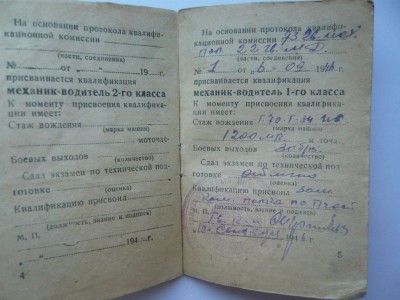 На основании протокола квалифи-
кационной комиссии
(части, соединения)
№ от 19 г.
присваивается квалификация
механик-водитель 2-го класса
К моменту присвоения квалифика-
ции имеет:
Стаж вождения
(марка машин)
моточас.
Боевых выходов
(количество)
Сдал экзамен по технической под-
готовке
(оценка)
Квалификацию присвоил
(должность, звание и подпись)
М. П.
194 г.
4
На основании протокола квалифи-
кационной комиссии
(части, соединения)
№ 1 от 6 09 194 г.
присваивается квалификация
механик-водитель 1-го класса
К моменту присвоения квалифика-
ции имеет:
Стаж вождения Т-70. Т-34
(марка машин)
1200 моточас.
Боевых выходов
(количество)
Сдал экзамен по технической под-
готовке отлично
(оценка)
Квалификацию присвоил зам
ком. полка по
М. П. (должность, звание и подпись)
194 г.
5